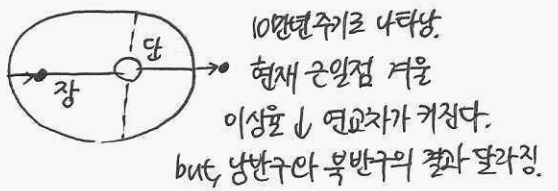 단
장
10만년 주기로 나타남.
현재 근일점 겨울
이상율 ↓ 연교차가 커진다.
but, 남반구와 북반구의 결과 달라짐.